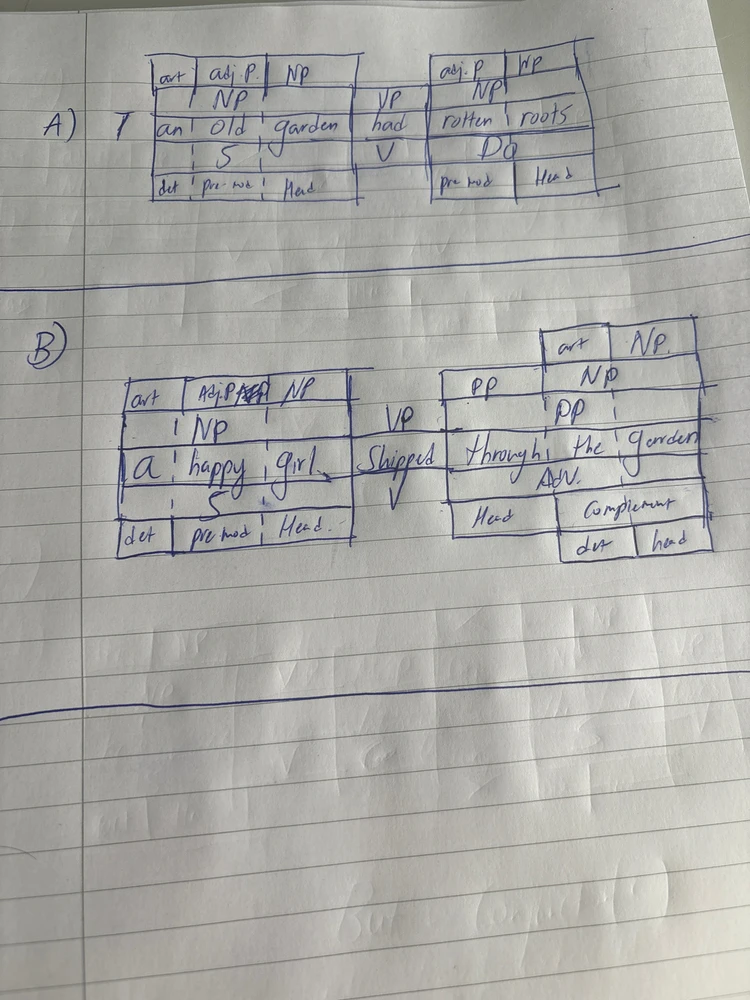 art adj.P. NP adj.P NP
NP VP NP
A) 1 an old garden had rotten roots
S V DO
det pre-mod Head pre mod Head
art NP.
B) art Adj.P NP PP NP
NP VP PP
a happy girl Shipped through the garden
S V Adv.
det pre mod Head. Head Complement
det head